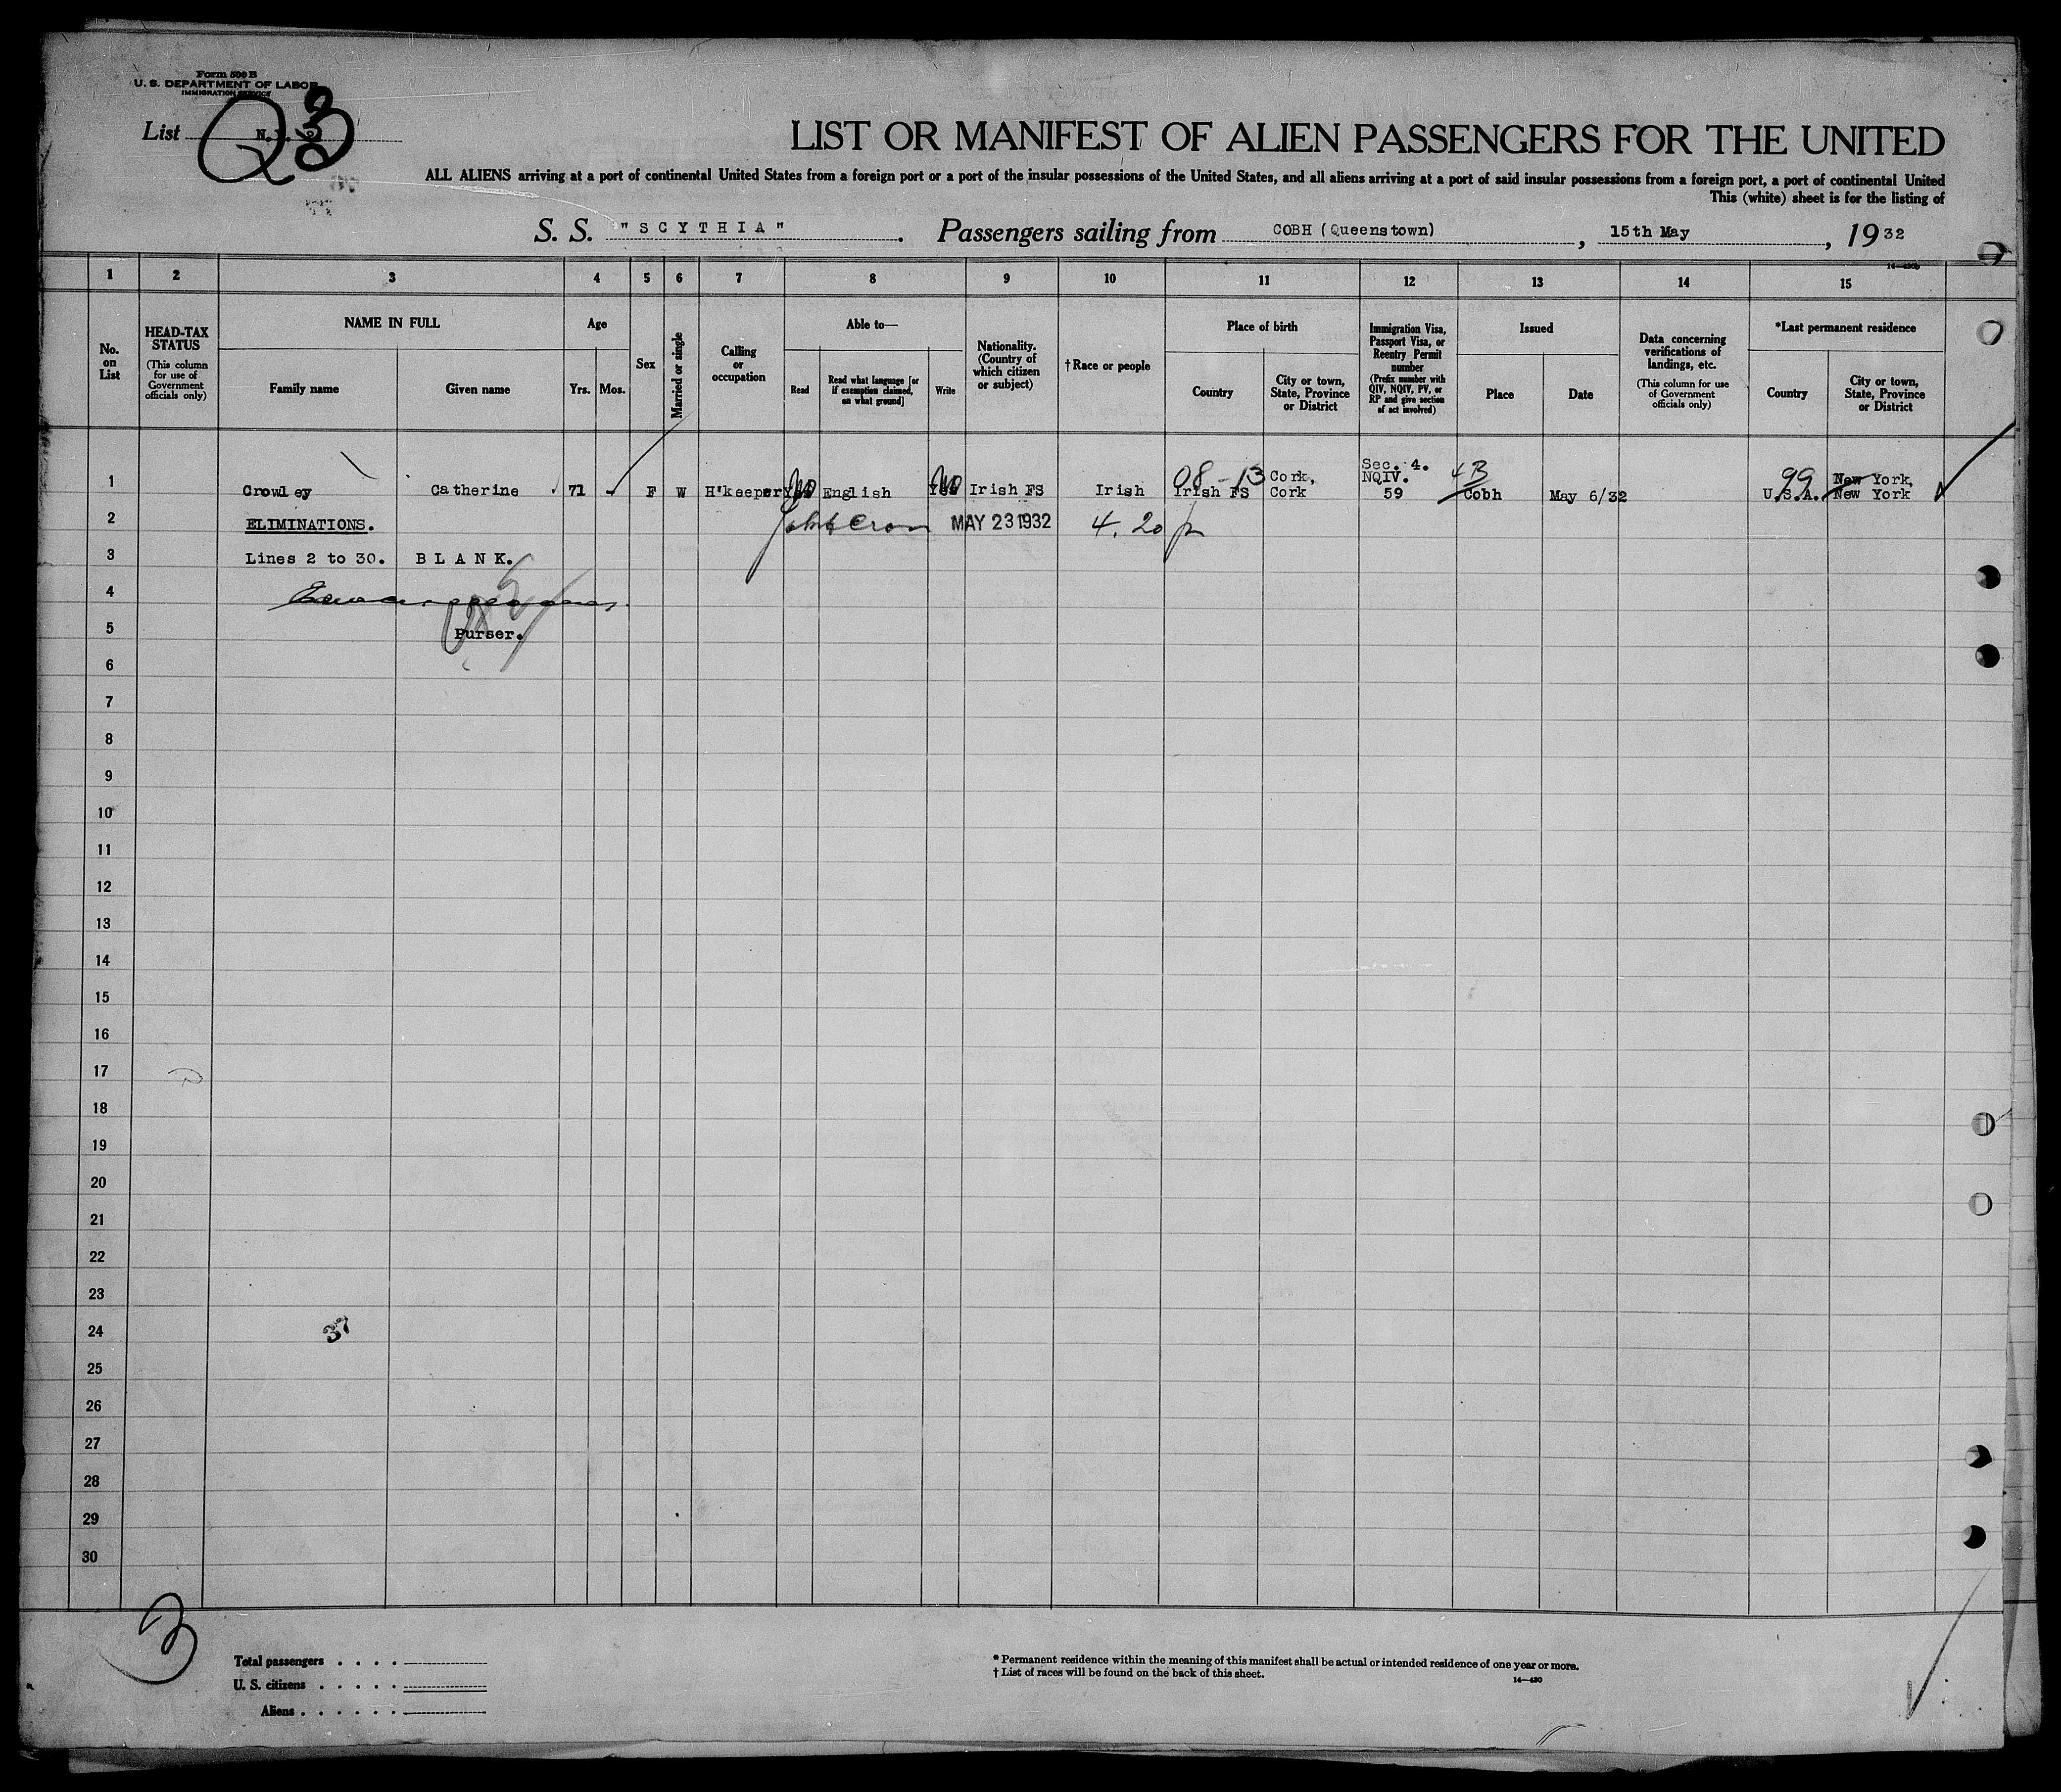 Form 500 B
U. S. DEPARTMENT OF LABOR
IMMIGRATION SERVICE
List
3
LIST OR MANIFEST OF ALIEN PASSENGERS FOR THE UNITED
ALL ALIENS arriving at a port of continental United States from a foreign port or a port of the insular possessions of the United States, and all aliens arriving at a port of said insular possessions from a foreign port, a port of continental United
This (white) sheet is for the listing of
S. S. "SCYTHIA". Passengers sailing from COBH (Queenstown), 15th May, 1932
14—430b
1 2 3 4 5 6 7 8 9 10 11 12 13 14 15
No. on List
HEAD-TAX STATUS
(This column for use of Government officials only)
NAME IN FULL
Family name
Given name
Age
Yrs. Mos.
Sex
Married or single
Calling or occupation
Able to—
Read
Read what language [or if exemption claimed, on what ground]
Write
Nationality. (Country of which citizen or subject)
†Race or people
Place of birth
Country
City or town, State, Province or District
Immigration Visa, Passport Visa, or Reentry Permit number
(Prefix number with QIV, NQIV, PV, or RP and give section of act involved)
Issued
Place
Date
Data concerning verifications of landings, etc.
(This column for use of Government officials only)
*Last permanent residence
Country
City or town, State, Province or District
08 - 13 Cork, Sec. 4. NQIV. 4B 99 New York,
1 Crowley Catherine 71 - F W H'keeper Yes No English Yes No Irish FS Irish Irish FS Cork 59 Cobh May 6/32 U.S.A. New York
2 ELIMINATIONS. MAY 23 1932 4.20 p
3 Lines 2 to 30. BLANK.
4
5 Purser.
6
7
8
9
10
11
12
13
14
15
16
17
18
19
20
21
22
23
24 37
25
26
27
28
29
30
3
Total passengers . . . .
U. S. citizens . . . . .
Aliens . . . . . .
* Permanent residence within the meaning of this manifest shall be actual or intended residence of one year or more.
† List of races will be found on the back of this sheet.
14—430